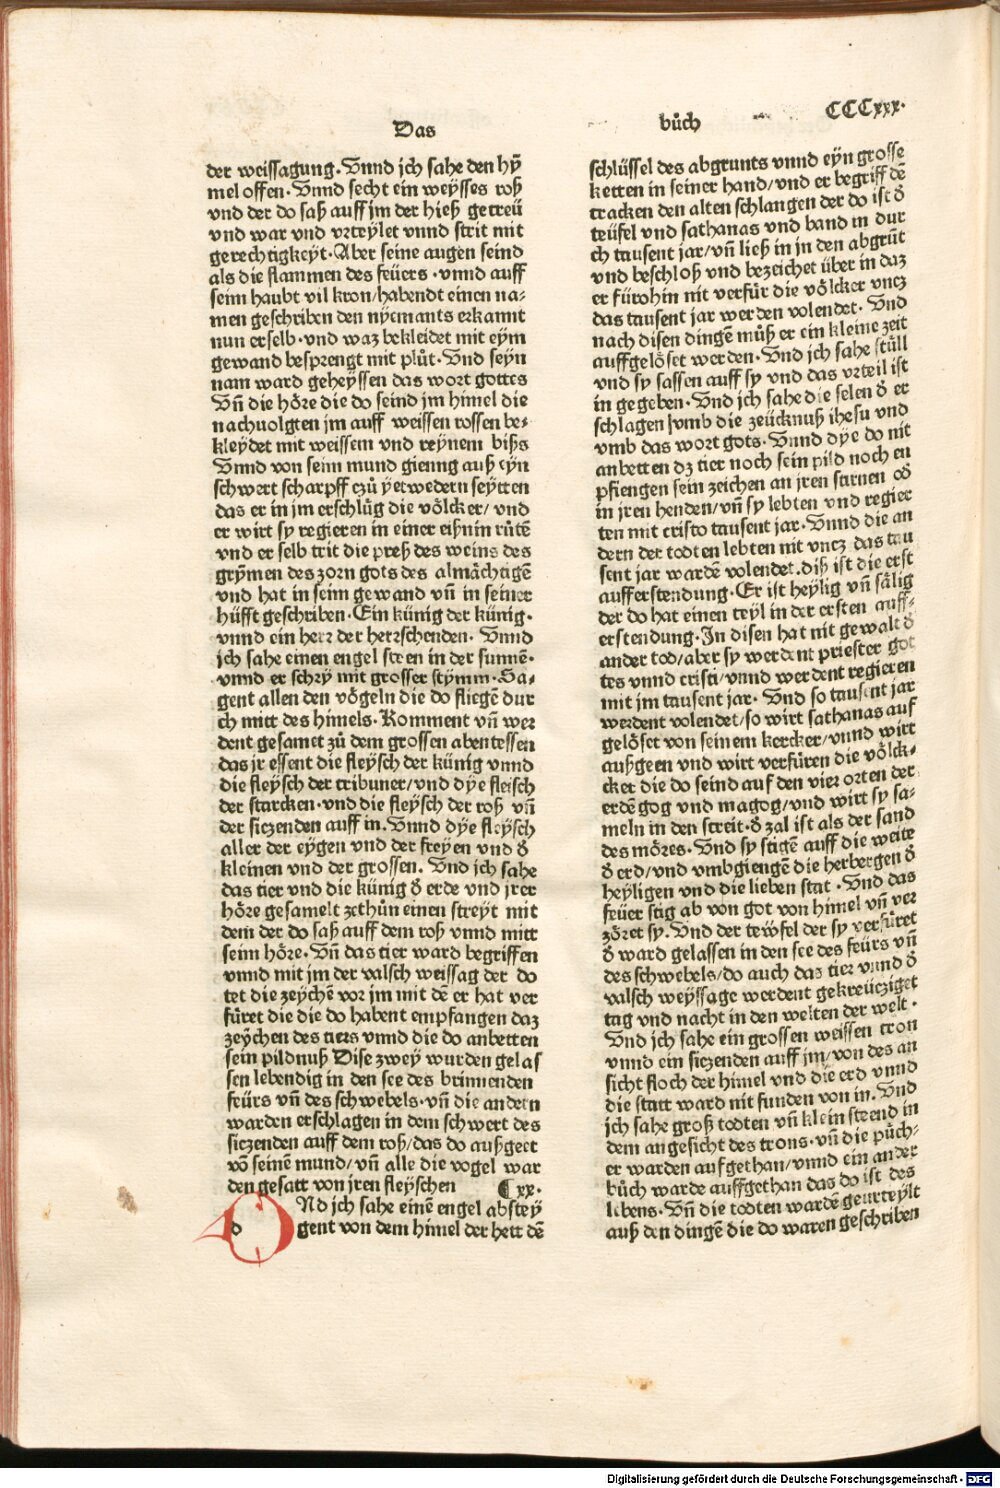 Das
bůch
CCCxxx.
der weissagung. Vnnd jch sahe den hy̅
mel offen. Vnnd secht ein weysses roß
vnd der do saß auff jm der hieß getreü
vnd war vnd vrteylet vnnd strit mit
gerechtigkeyt. Aber seine augen seind
als die flammen des feüers. vnnd auff
seim haubt vil kron/habendt einen na⸗
men geschriben den nyemants erkannt
nun er selb. vnd waz bekleidet mit eym
gewand besprengt mit plůt. Vnd seyn
nam ward geheyssen das wort gottes
Vn̅ die höre die do seind jm himel die
nachuolgten jm auff weissen rossen be⸗
kleydet mit weissem vnd reynem bißs
Vnnd von seim mund gienng auß eyn
schwert scharpff czů yetwedern seytten
das er in jm erschlůg die völcker/ vnd
er wirt sy regieren in einer eißnin růte̅
vnd er selb trit die preß des weins des
grymmen des zorn gots des almächtige̅
vnd hat in seim gewand vn̅ in seiner
hüfft geschriben. Ein künig der künig.
vnnd ein herr der herrschenden. Vnnd
jch sahe einen engel steen in der sunne̅.
vnnd er schry mit grosser stymm. Sa⸗
gent allen den vögeln die do fliege̅ dur
ch mitt des himels. Komment vn̅ wer
dent gesamet zů dem grossen abentessen
das jr essent die fleysch der künig vnnd
die fleysch der tribuner/vnd dye fleisch
der starcken. vnd die fleysch der roß vn̅
der siczenden auff in. Vnnd dye fleysch
aller der eygen vnd der freyen vnd d̕
kleinen vnd der grossen. Vnd jch sahe
das tier vnd die künig d̕ erde vnd jrer
höre gesamelt zethůn einen streyt mit
dem der do saß auff dem roß vnnd mitt
seim höre. Vn̅ das tier ward begriffen
vnnd mit jm der valsch weissag der do
tet die zeyche̅ vor jm mit de̅ er hat ver
füret die die do habent empfangen daz
zeychen des tiers vnnd die do anbetten
sein pildnuß Dise zwey wurden gelas
sen lebendig in den see des brinnenden
feürs vn̅ des schwebels. vn̅ die andern
warden erschlagen in dem schwert des
siczenden auff dem roß/das do außgeet
vo̅ seine̅ mund/ vn̅ alle die vogel war
den gesatt von jren fleyschen ⸿xx.
VNd jch sahe eine̅ engel abstey
gent von dem himel der hett de̅
schlüssel des abgrunts vnnd eyn grosse
ketten in seiner hand/vnd er begriff de̅
tracken den alten schlangen der do ist d̕
teüfel vnd sathanas vnd band in dur
ch tausent jar/vn̅ ließ in in den abgru̅t
vnd beschloß vnd bezeichet über in daz
er fürohin nit verfür die völcker vncz
das tausent jar werden volendet. Vnd
nach disen dinge̅ můß er ein kleine zeit
auffgelöset werden. Vnd jch sahe stüll
vnd sy sassen auff sy vnd das vrteil ist
in gegeben. Vnd jch sahe die selen d̕ er
schlagen vmb die zeücknuß ihesu vnd
vmb das wort gots. Vnnd dye do nit
anbetten dz tier noch sein pild noch en
pfiengen sein zeichen an jren stirnen od̕
in jren henden/vn̅ sy lebten vnd regier
ten mit cristo tausent jar. Vnnd die an
dern der todten lebten nit vncz das tau
sent jar warde̅ volendet. diß ist die erst
aufferstendung. Er ist heylig vn̅ sälig
der do hat einen teyl in der ersten auff⸗
erstendung. In disen hat nit gewalt d̕
ander tod/aber sy werdent priester got
tes vnnd cristi/vnnd werdent regieren
mit jm tausent jar. Vnd so tausent jar
werdent volendet/so wirt sathanas auf
gelöset von seinem kercker/vnnd wirt
außgeen vnd wirt verfüren die völck⸗
cker die do seind auf den vier orten der
erde̅ gog vnd magog/vnd wirt sy sa⸗
meln in den streit. d̕ zal ist als der sand
des möres. Vnd sy stige̅ auff die weite
d̕ erd/vnd vmbgienge̅ die herbergen d̕
heyligen vnd die lieben stat. Vnd das
feüer stig ab von got von himel vn̅ ver
zöret sy. Vnd der tewfel der sy verfüret
d̕ ward gelassen in den see des feürs vn̅
des schwebels/do auch das tier vnnd d̕
valsch weyssage werdent gekreücziget
tag vnd nacht in den welten der welt.
Vnd jch sahe ein grossen weissen tron
vnnd ein siczenden auff jm/von des an
sicht floch der himel vnd die erd vnnd
die statt ward nit funden von in. Vnd
jch sahe groß todten vn̅ klein steend in
dem angesicht des trons. vn̅ die půch⸗
er warden aufgethan/vnnd ein ander
bůch warde auffgethan das do ist des
lebens. Vn̅ die todten warde̅ geurteylt
auß den dinge̅ die do waren geschriben
Digitalisierung gefördert durch die Deutsche Forschungsgemeinschaft - DFG